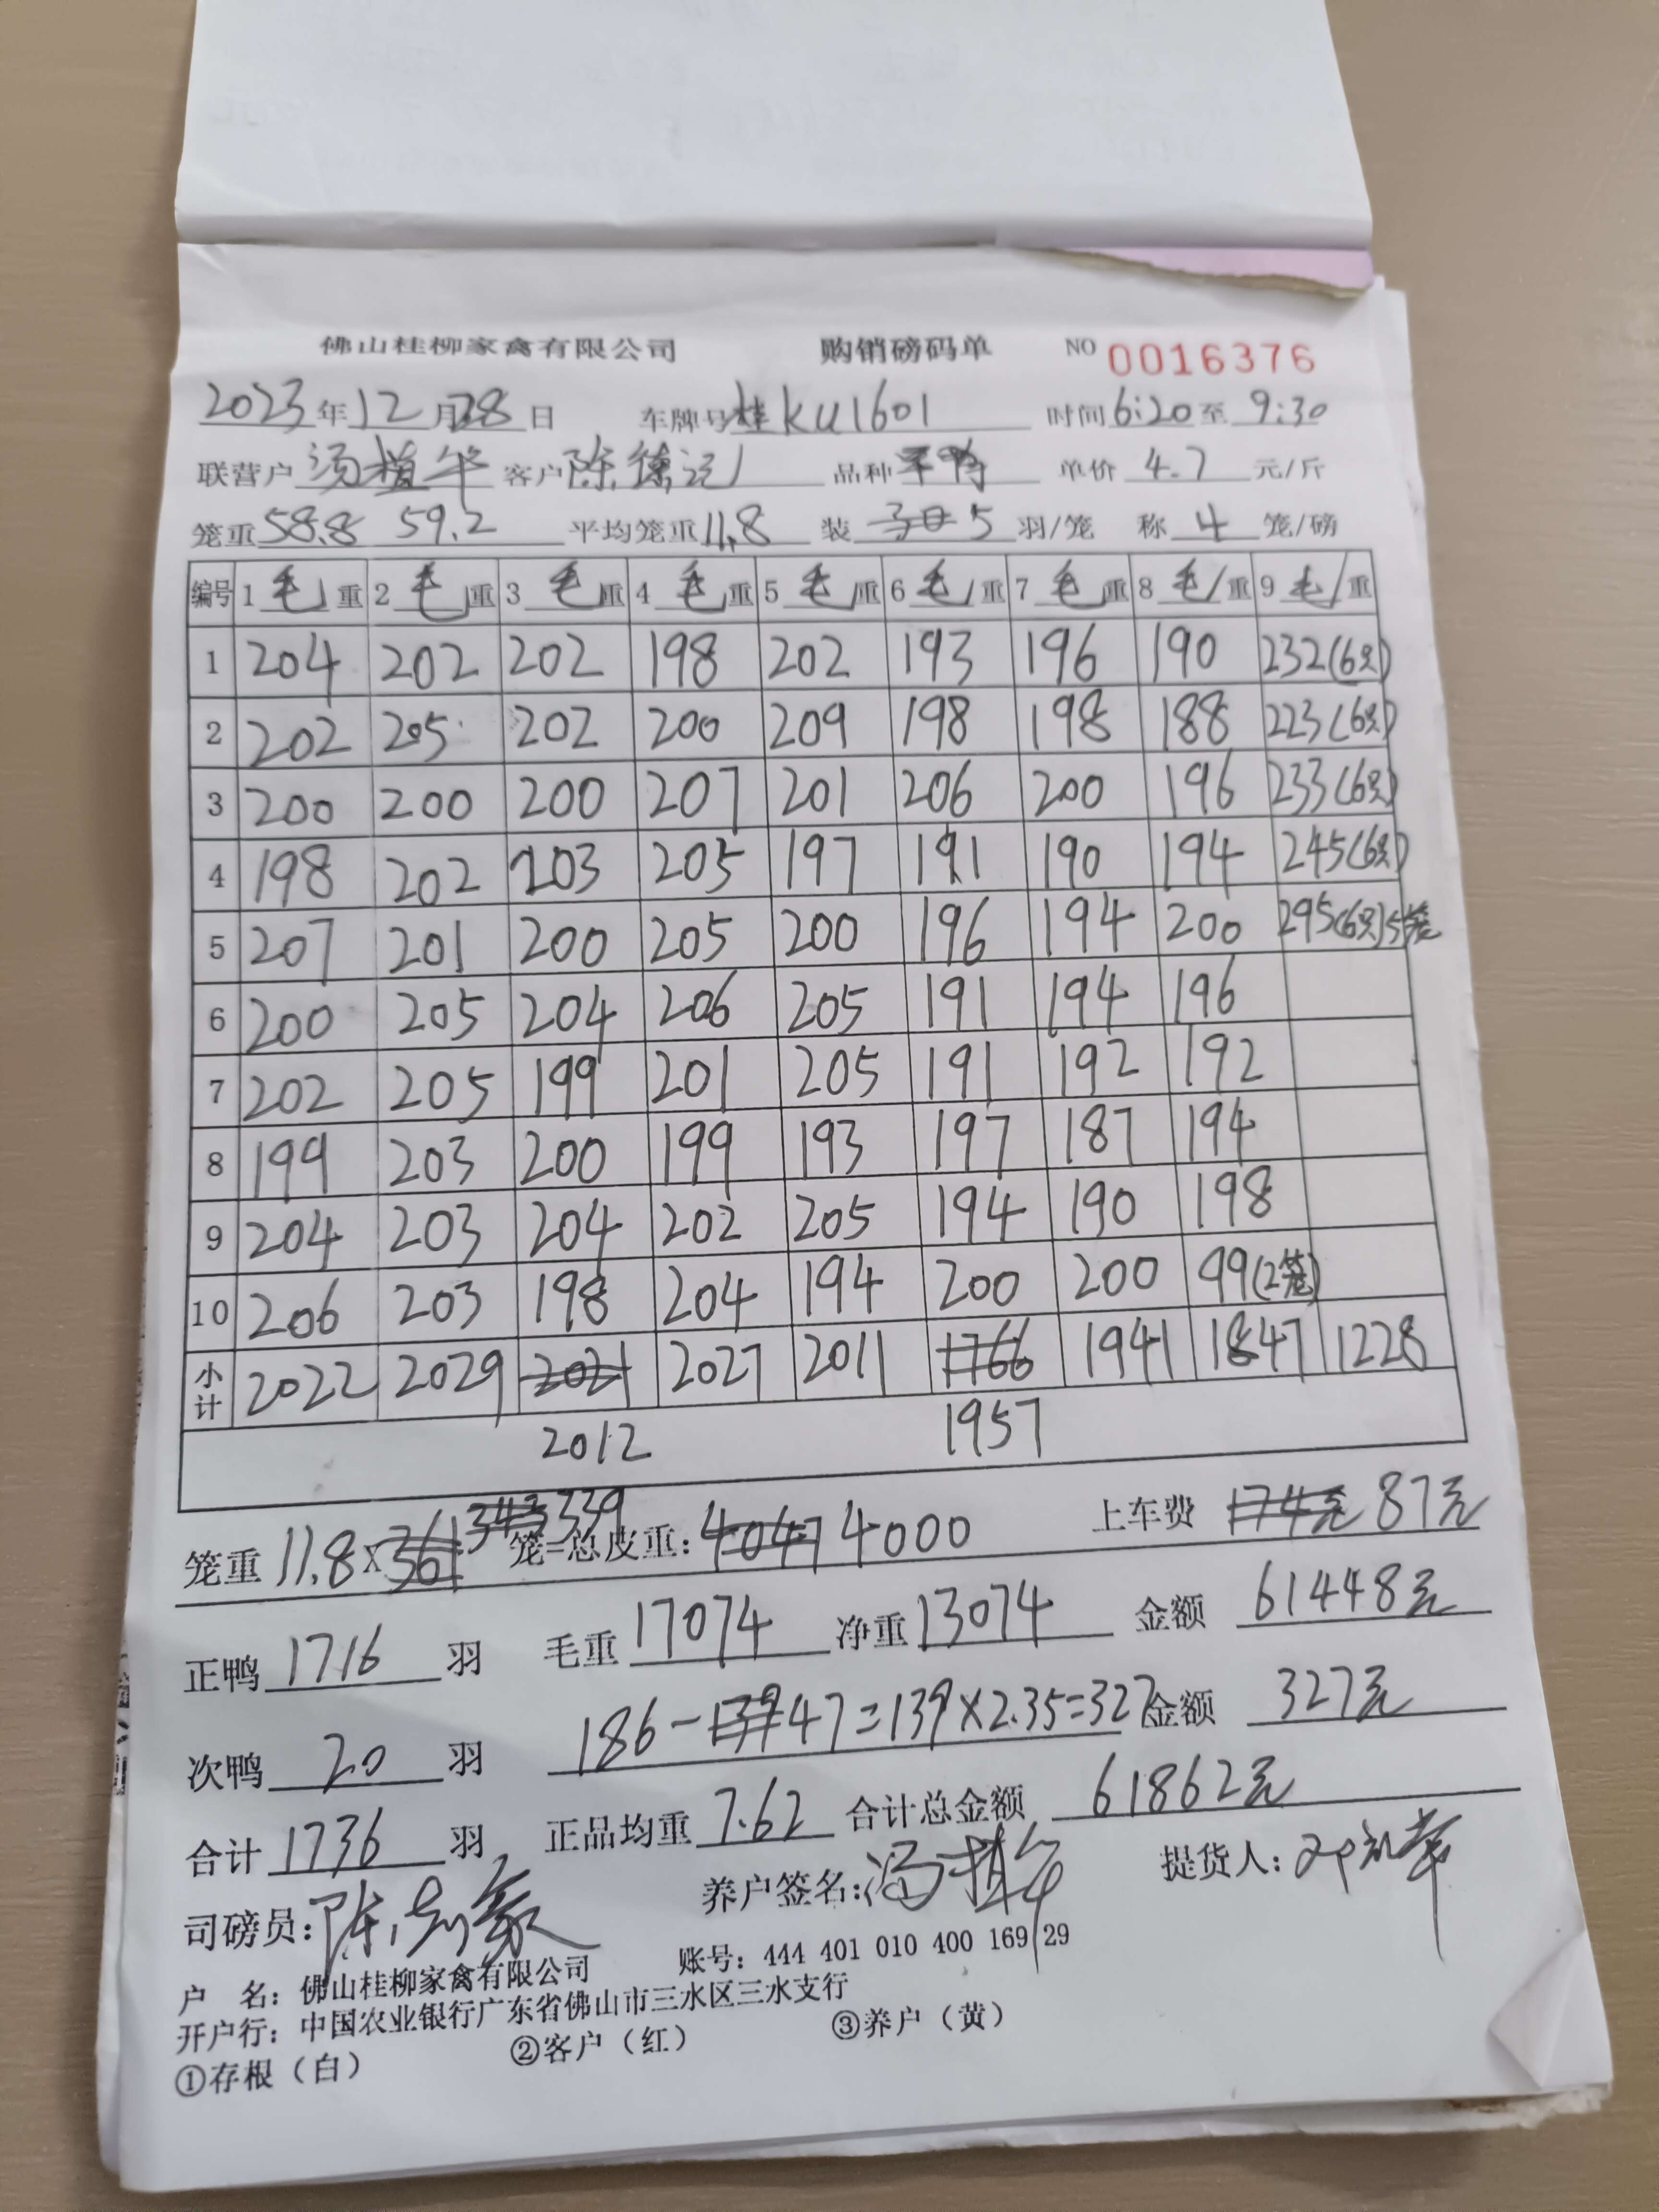 佛山桂柳家禽有限公司 购销磅码单 NO 0016376
2023年12月28日 车牌号桂KU1601 时间6:20至9:30
联营户 客户陈德记 品种 单价4.7元/斤
笼重58.8 59.2 平均笼重11.8 装5羽/笼 称4笼/磅
编号 1毛重 2毛重 3毛重 4毛重 5毛重 6毛重 7毛重 8毛重 9毛重
1 204 202 202 198 202 193 196 190 232(6只)
2 202 205 202 200 209 198 198 188 223(6只)
3 200 200 200 207 201 206 200 196 233(6只)
4 198 202 203 205 197 191 190 194 245(6只)
5 207 201 200 205 200 196 194 200 295(6只)5笼
6 200 205 204 206 205 191 194 196
7 202 205 199 201 205 191 192 192
8 199 203 200 199 193 197 187 194
9 204 203 204 202 205 194 190 198
10 206 203 198 204 194 200 200 99(2笼)
小计 2022 2029 2021 2027 2011 1766 1941 1847 1228
2012 1957
笼重11.8×361 343 339笼=总皮重:4047 4000 上车费 174元 87元
正鸭1716羽 毛重17074 净重13074 金额61448元
次鸭20羽 186-47=139×2.35=327 金额327元
合计1736羽 正品均重7.62 合计总金额61862元
司磅员: 养户签名: 提货人:
户 名:佛山桂柳家禽有限公司 账号:444 401 010 400 169 29
开户行:中国农业银行广东省佛山市三水区三水支行
①存根(白) ②客户(红) ③养户(黄)